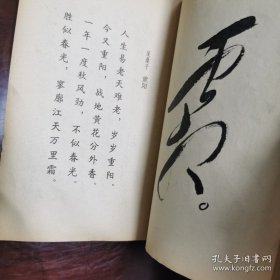 采桑子 重阳
人生易老天难老，岁岁重阳。
今又重阳，战地黄花分外香。
一年一度秋风劲，不似春光。
胜似春光，寥廓江天万里霜。
霜。
孔夫子旧书网